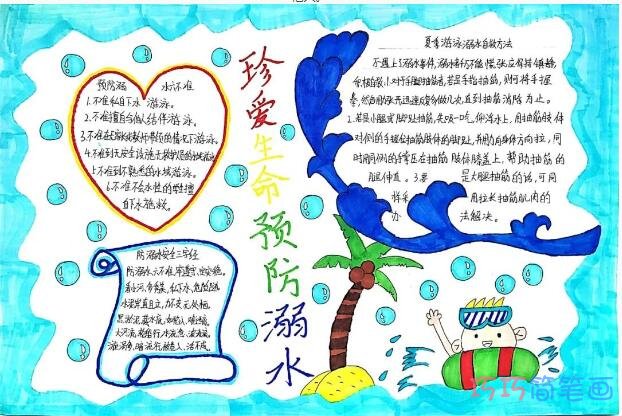 珍爱生命预防溺水
预防溺 水六不准
1.不准私自下水游泳。
2.不准擅自与他人结伴游泳。
3.不准在无家长或教师带领的情况下游泳。
4.不准到无安全设施、无救护人员的水域游泳。
5.不准到不熟悉的水域游泳。
6.不准不会水性的学生擅
自下水施救。
防溺水安全三字经
防溺水,六不准,
私下水,危险
夏季游泳溺水自救方法
不遇上了溺水事件,溺水时不能慌张,应保持镇静,
若是手指抽筋,则可将手握
拳,然后用力张开,迅速反复多做几次,直到抽筋消除为止。
2.若是小腿或脚趾抽筋,先吸一口气仰浮水上,用抽筋肢体
对侧的手握住抽筋肢体的脚趾,并用力向身体方向拉,同
时用同侧的手掌压在抽筋肢体膝盖上,帮助抽筋的
腿伸直。3.要是大腿抽筋的话,可同
样采用拉长抽筋肌肉的
办法解决。
1515简笔画